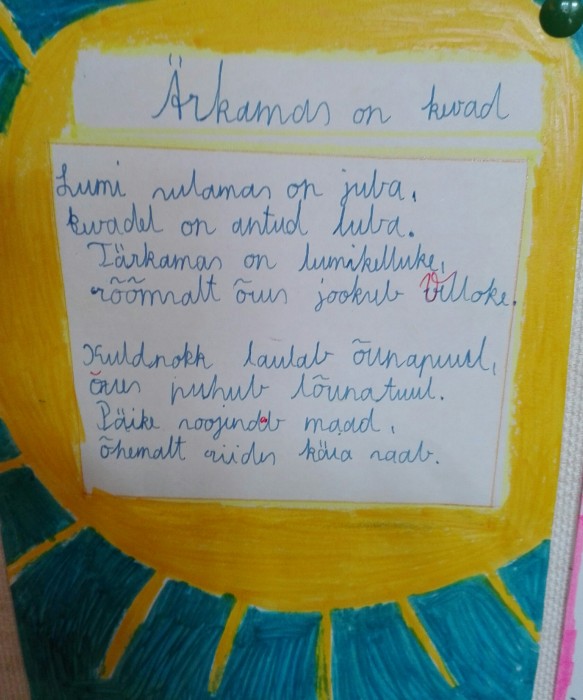 Ärkamas on kevad
Lumi sulamas on juba,
kevadel on antud luba.
Tärkamas on lumikelluke,
rõõmsalt õues jookseb Villoke.
Kuldnokk laulab õunapuul,
õues puhub lõunatuul.
Päike soojendab maad,
õhemalt riides käia saab.